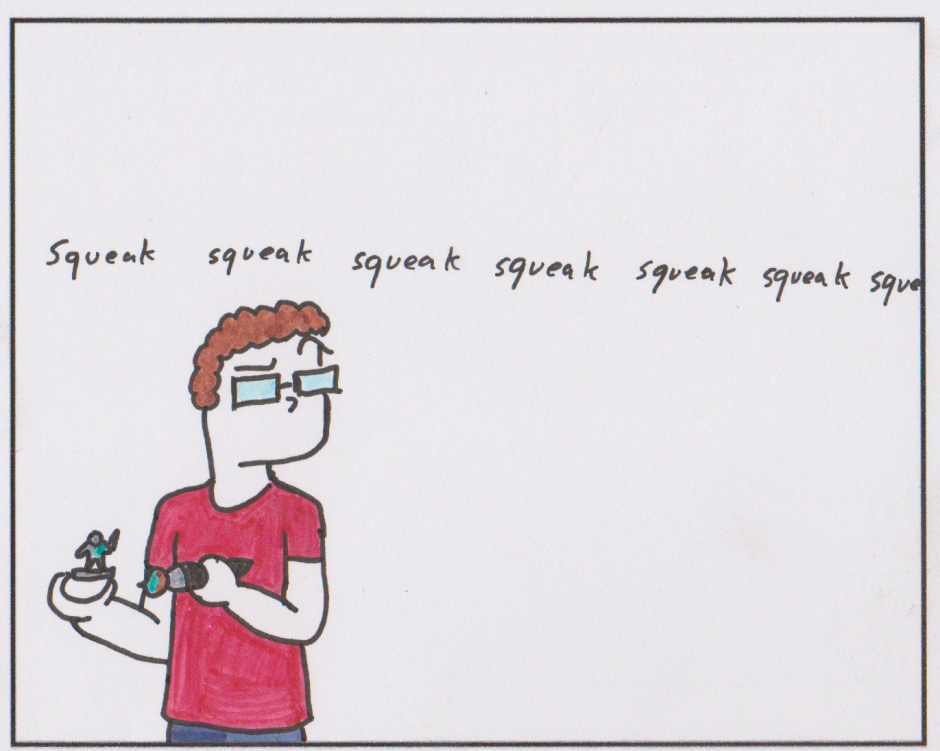 Squeak squeak squeak squeak squeak squeak sque